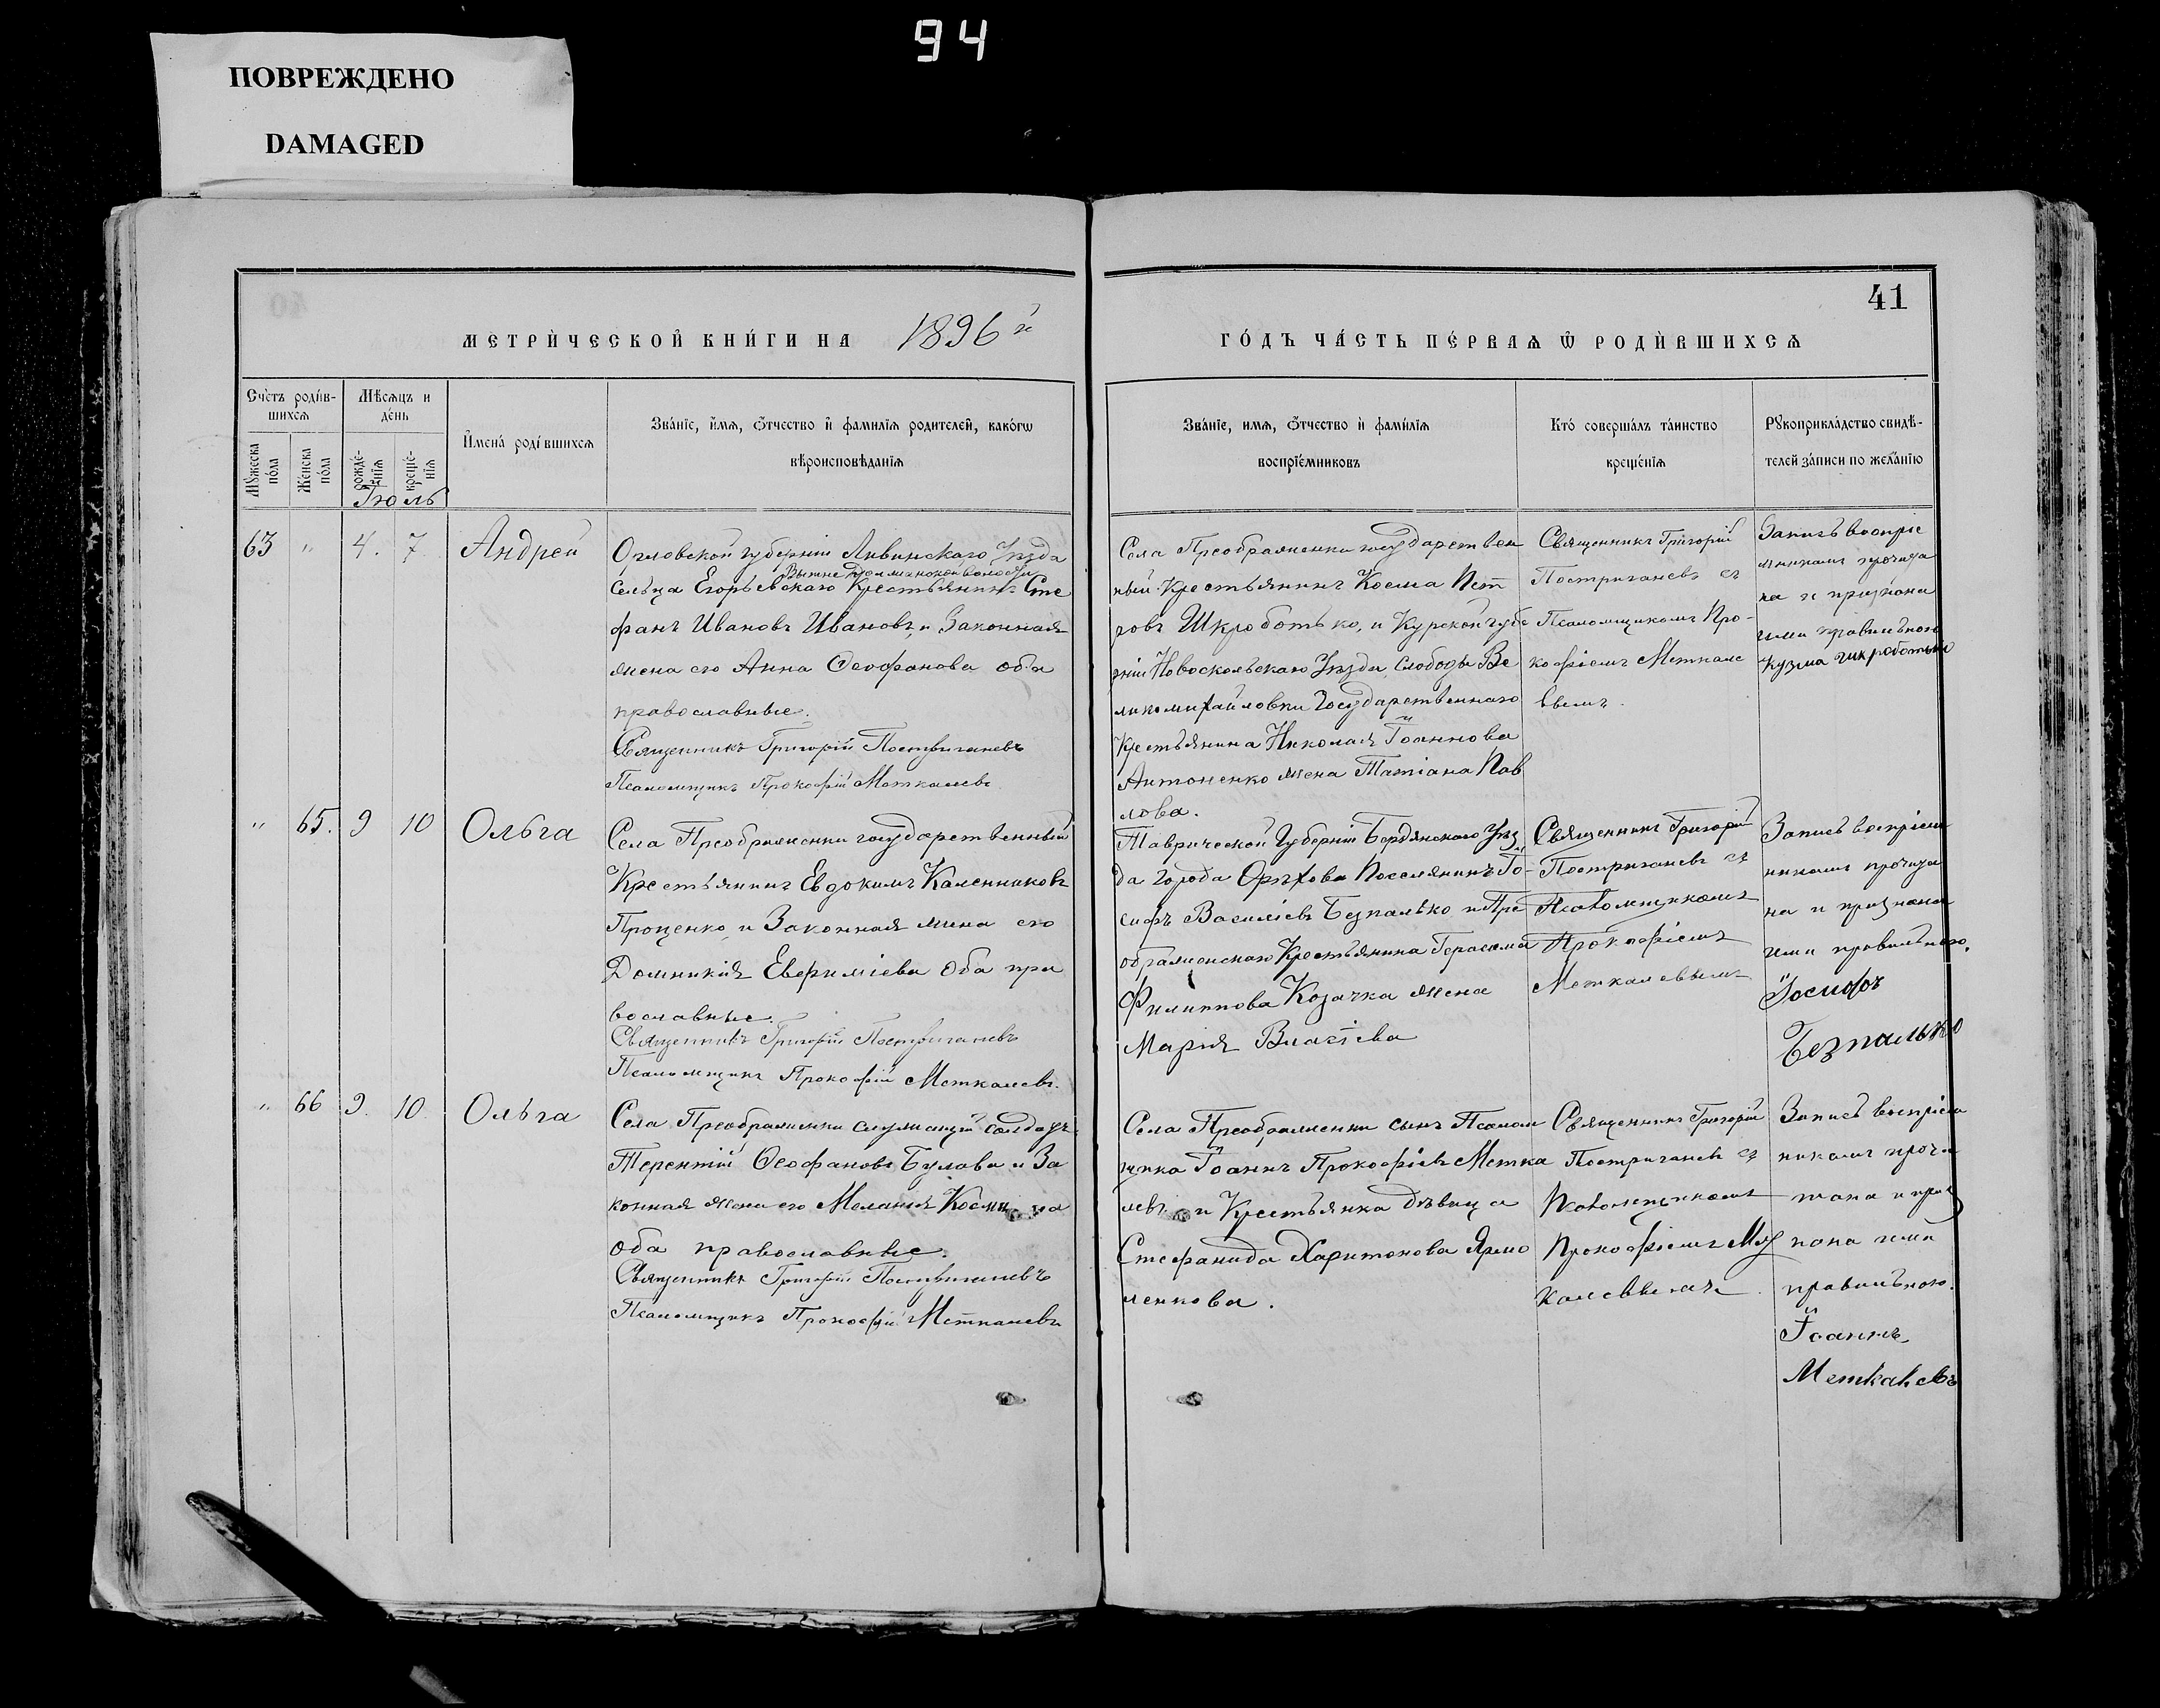 94
ПОВРЕЖДЕНО
DAMAGED
41
МЕТРИ́ЧЕСКОЙ КНИ́ГИ НА 1896й
ГО́ДЪ ЧА́СТЬ ПЕ́РВАѦ Ѿ РОДИ́ВШИХСѦ
Счетъ роди́в-
шихсѧ
Мѣсѧцъ и
де́нь
Мꙋжеска
по́ла
Же́нска
по́ла
рожде́-
нїѧ
креще́-
нїѧ
Іюль
И҆мена̀ роди́вшихсѧ
Зва́нїе, и҆́мѧ, ѻ҆́тчество и҆ фами́лїѧ родителей, како́гѡ
вѣроисповѣданїѧ
Зва́нїе, имѧ, ѻ҆́тчество и҆ фами́лїѧ
воспрїе́мниковъ
Кто́ соверша́лъ та́инство
креще́нїѧ
Рꙋкоприкла́дство свидѣ-
телей за́писи по жела́нїю
63 " 4. 7 Андрей
Орловской губерніи Ливинскаго Уѣзда
Вышне Долманской волости
Сельца Егорьевскаго Крестьянинъ Сте
фанъ Ивановъ Ивановъ, и Законная
жена его Анна Ѳеофанова оба
православные.
Священникъ Григорій Постригачевъ
Псаломщикъ Прокофій Меткалевъ
Села Преображенки государствен
ный Крестьянинъ Косма Пет
ровъ Шкроботько, и Курской губе
рніи Новоскольскаго Уѣзда, Слободы Ве
ликомихайловки Государственнаго
Крестьянина Николая Іоаннова
Антоненко жена Татіана Пав
лова.
Священникъ Григорій
Постригачевъ съ
Псаломщикомъ Про-
кофіемъ Меткале
вымъ.
Запись воспріе
мникамъ прочита
на и признана
ими правильною
Кузма Шкроботько
" 65. 9 10 Ольга
Села Преображенки государственный
Крестьянинъ Евдокимъ Каленниковъ
Проценко, и Законная жена его
Домникія Евфиміева Оба пра
вославные.
Священникъ Григорій Постригачевъ
Псаломщикъ Прокофій Меткалевъ.
Таврической Губерніи Бердянскаго Уѣз
да города Орѣхова Поселянинъ Іо-
сифъ Василіевъ Безпалько и Пре
ображенскаго Крестьянина Герасима
Филиппова Козачка жена
Марія Власіева
Священникъ Григорій
Постригачевъ съ
Псаломщикомъ
Прокофіемъ
Меткалевымъ
Запись воспріем
никамъ прочита
на и признана
ими правильною.
Іосифъ
Безпалько
" 66 9. 10. Ольга
Села Преображенки служащій солдатъ
Терентій Ѳеофановъ Булава и За
конная жена его Меланія Косми на
оба православные.
Священникъ Григорій Постригачевъ
Псаломщикъ Прокофій Меткалевъ
Села Преображенки сынъ Псалом
щика Іоаннъ Прокофіевъ Метка
левъ и Крестьянка дѣвица
Стефанида Харитонова Ярмо
ленкова.
Священникъ Григорій
Постригачевъ съ
Псаломщикомъ
Прокофіемъ Мет
калевымъ.
Запись воспріем
никамъ прочи
тана и приз
нана ими
правильною.
Іоаннъ
Меткалевъ